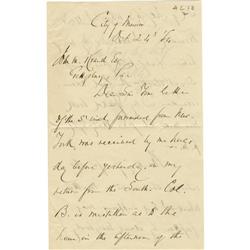 City of Mexico
Oct. 24
John M. Krauth Esq
Gettysburg Pa
Dear Sir Your letter
of the 5th inst. forwarded from New
York was received by me here
day before yesterday, on my
return from the South. Col.
B. is mistaken as to the
hour, in the afternoon of the